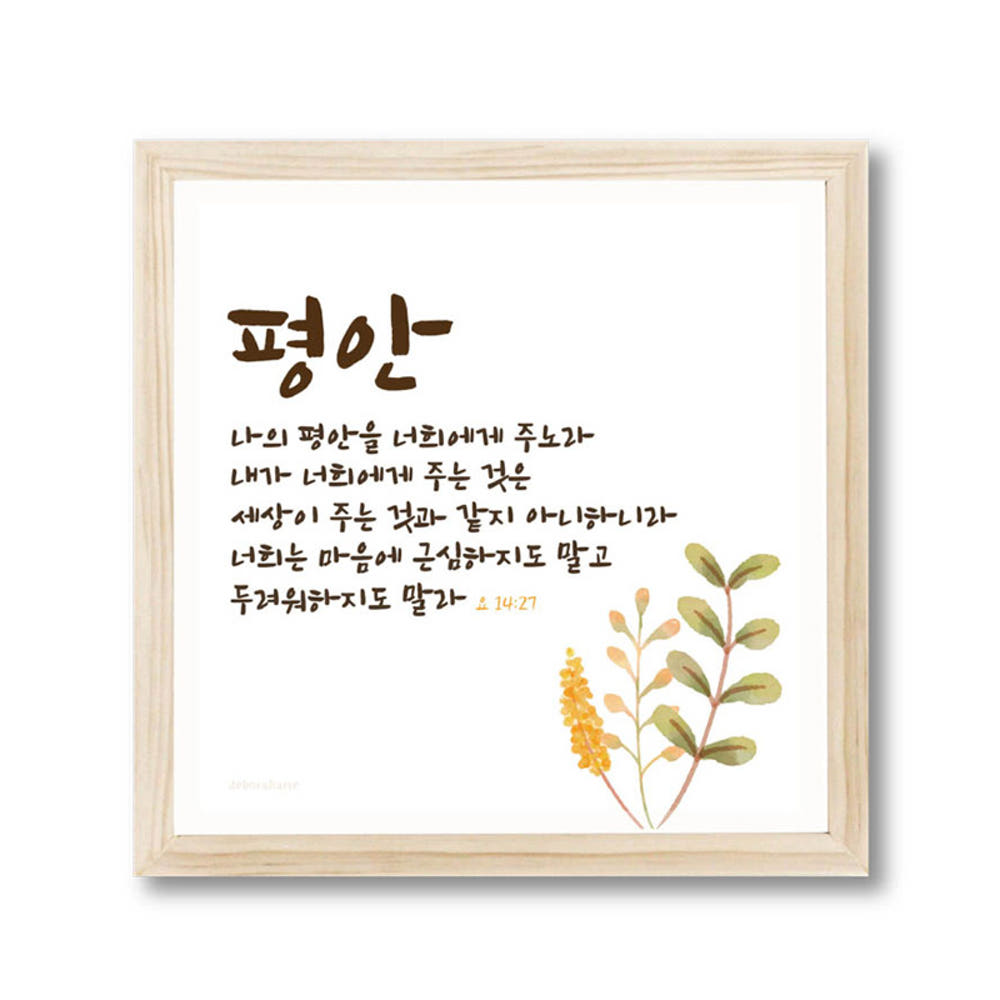 평안
나의 평안을 너희에게 주노라
내가 너희에게 주는 것은
세상이 주는 것과 같지 아니하니라
너희는 마음에 근심하지도 말고
두려워하지도 말라 요 14:27